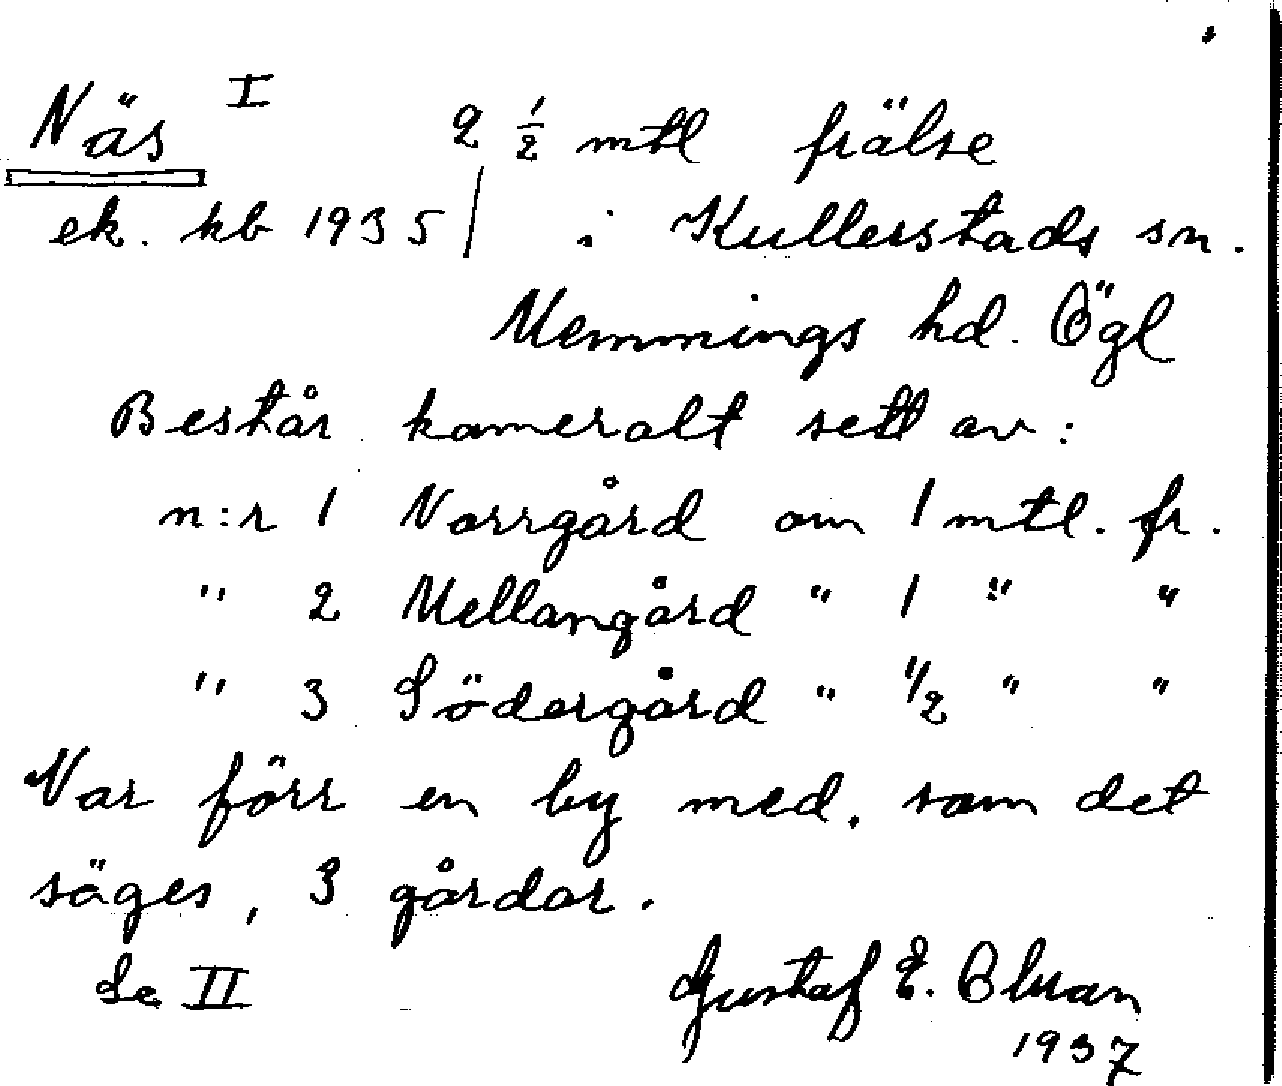 Näs I 2 ½ mtl frälse
ek. kb 1935/ i Kullerstads sn.
Memmings hd. Ögl
Består kameralt sett av:
n:r 1 Norrgård om 1 mtl. fr.
" 2 Mellangård " 1 " "
" 3 Södergård " 1/2 " "
Var förr en by med, som det
säges, 3 gårdar.
Se II Gustaf E. Olsson
1937